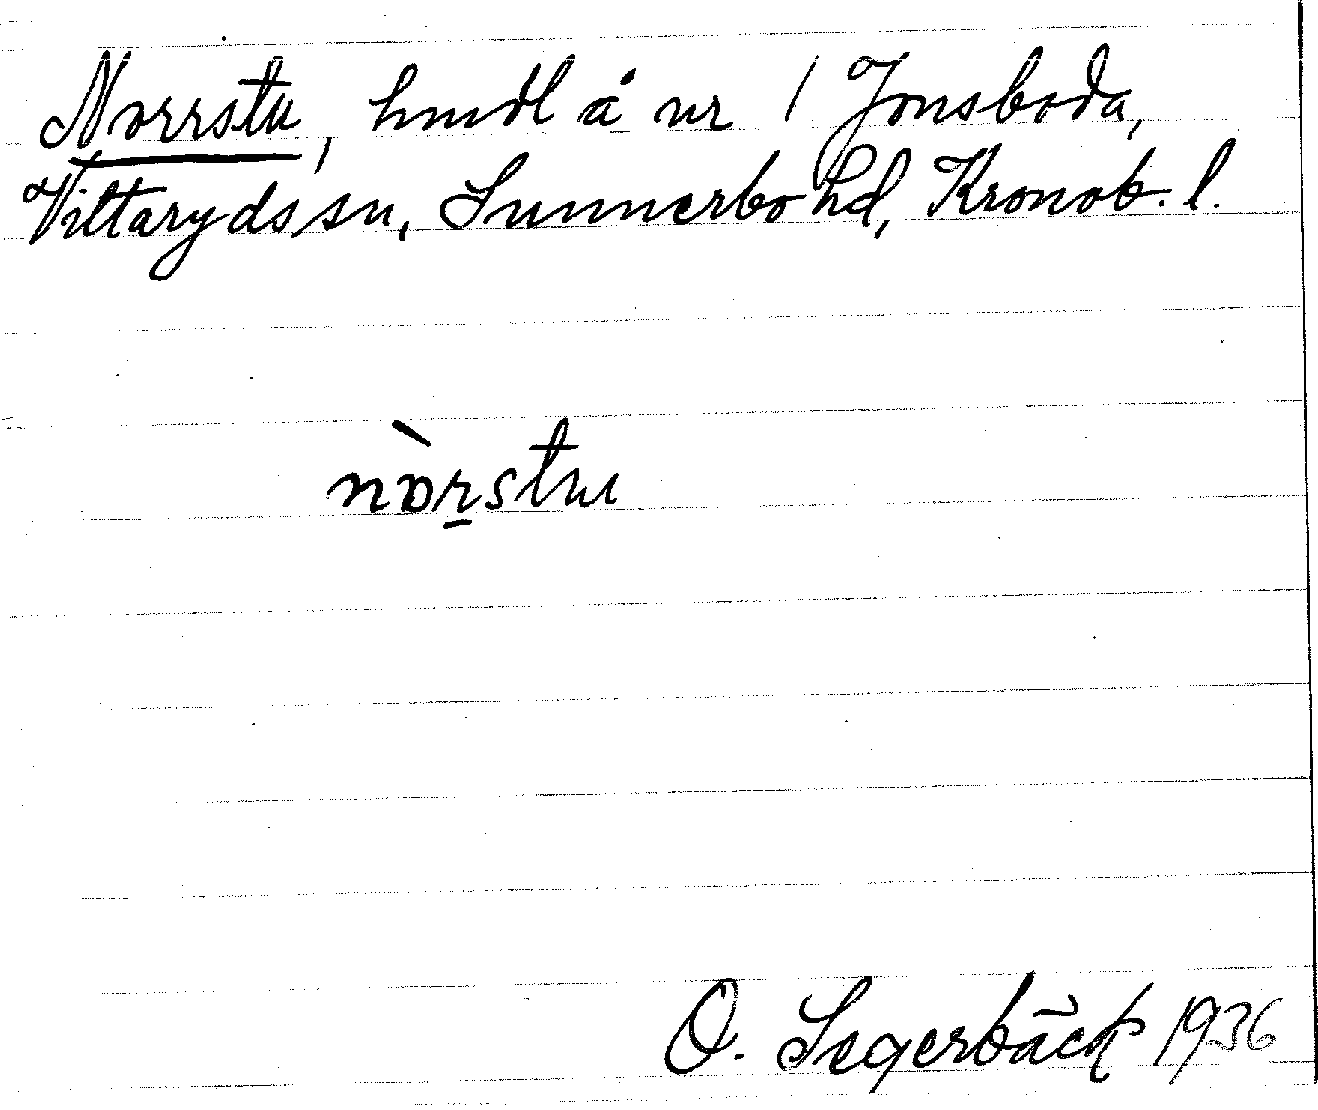 Norrstu, hmdl å nr 1 Jonsboda,
Vittaryds sn, Sunnerbo hd, Kronob. l.
nòr̠stu
O. Segerbäck 1936